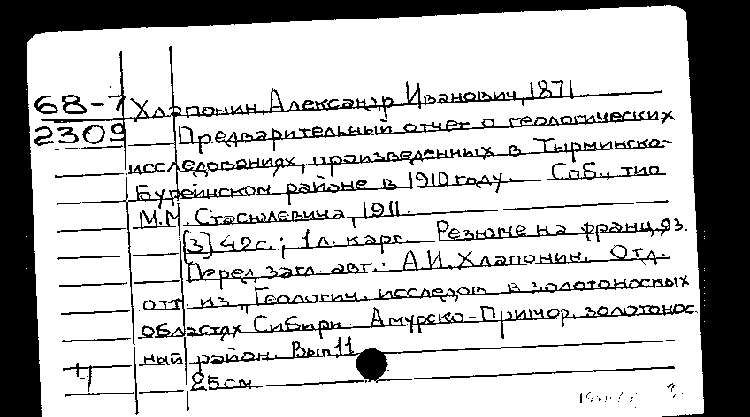 68-7 Хлапонин, Александр Иванович, 1871
2309 Предварительный отчет о геологических
исследованиях, произведенных в Тырминско-
Буреинском районе в 1910 году. Спб., тип
М.М. Стасюлевича, 1911.
[3] 42 с.; 1 л. карт. Резюме на франц. яз.
Перед загл. авт.: А.И. Хлапонин. Отд.
отт из "Геологич. исследов в золотоносных
областях Сибири. Амурско-Примор. золотонос
ный район. Вып. 11
25 см